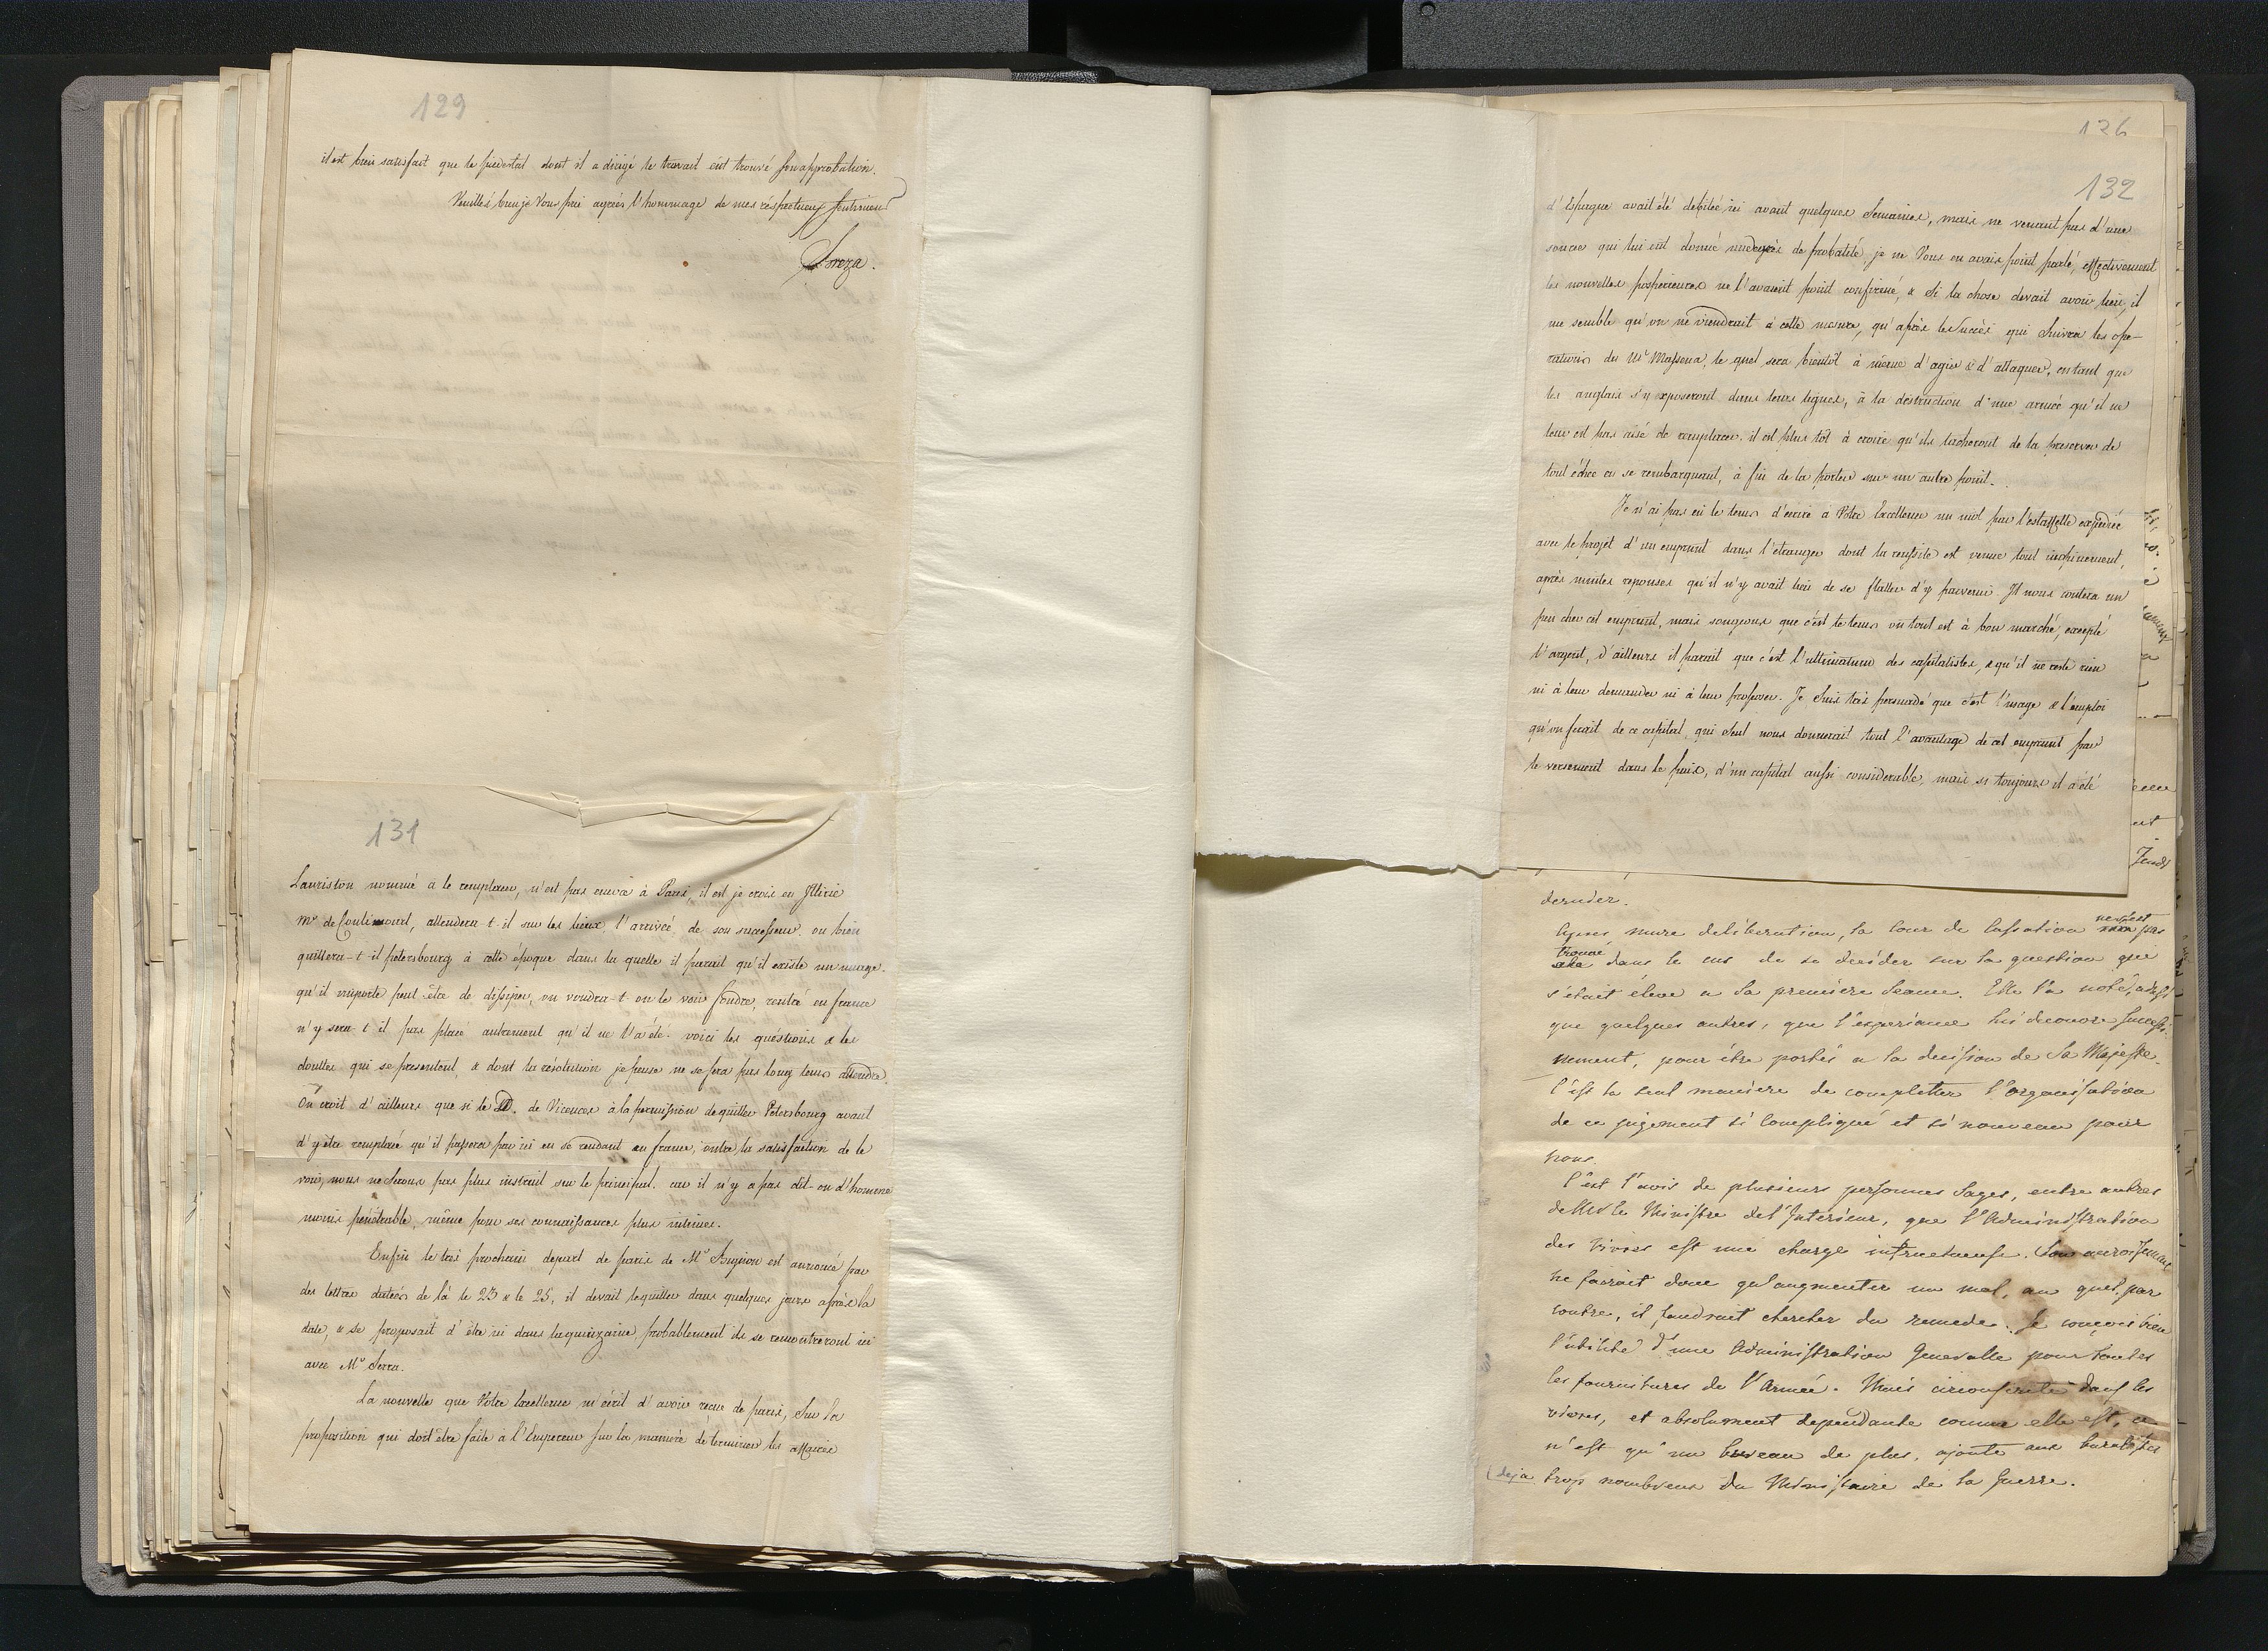 129
il est bien satisfait que le piedestal dont il a dirigé le travail eût trouvé son approbation.
Veuillés bien je Vous prie agréer l'hommage de mes réspectueux sentimens
Breza.
131
Lauriston nommé à le remplacer, n'est pas encore à Paris, il est je crois en Illirie
Mr de Coulincourt, attendera-t-il sur les lieux l'arrivée de son successeur. ou bien
quittera-t-il petersbourg à cette époque dans la quelle il parait qu'il existe un nuage.
qu'il importe peut être de dissiper, ou voudra-t-on le voir fondre, rentré en france
n'y sera-t-il pas placé autrement qu'il ne l'a été. voici les quéstions & les
douttes qui se presentent, & dont la résolution je pense ne se fera pas long tems attendre.
On croit d'ailleurs que si le D. de Vicence à la permission de quitter Petersbourg avant
d'y être remplacé qu'il passera par ici en se rendant en france, outre la satisfaction de le
voir, nous ne serons pas plus instruit sur le principal. car il n'y a pas dit-on d'homme
moins penetrable, même pour ses connaissances plus intimes.
Enfin le tres prochain depart de paris de Mr Bignon est annoncé par
des lettres datées de là le 23 & le 25, il devait le quitter dans quelques jours après la
date, & se proposait d'être ici dans la quinzaine, probablement ils se rencontreront ici
avec Mr Serra.
La nouvelle que Votre Excellence m'écrit d'avoir reçue de paris, sur la
proposition qui doit être faite à l'Empereur sur la maniére de terminer les affaires
126
132
d'Espagne avait été debitée ici avant quelques Semaines, mais ne venant pas d'une
source qui lui eût donné un degrés de probabilité, je ne Vous en avais point parlé, effectivement
les nouvelles posterieures ne l'avaient point confirmé, & Si la chose devait avoir lieu, il
me semble qu'on ne viendrait à cette mesure, qu'après le Succès qui Suivra les ope-
rations du Ml Massena, le quel sera bientôt à même d'agir & d'attaquer, en tant que
les anglais s'y exposeront dans leurs lignes, à la destruction d'une armée qu'il ne
leur est pas aisé de remplacer. il est plus tôt à croire qu'ils tacheront de la preserver de
tout échec en se rembarquant, à fin de la porter sur un autre point.
Je n'ai pas eu le tems d'ecrire à Votre Excellence un mot par l'estaffette expediée
avec le projet d'un emprunt dans l'etranger dont la reussite est venue tout inopinement,
après maintes reponses qu'il n'y avait lieu de se flatter d'y parvenir. Il nous coutera un
peu cher cet emprunt, mais songeons que c'est le tems ou tout est à bon marché, excepté
l'argent, d'ailleurs il parait que c'est l'ultimatum des capitalistes, & qu'il ne reste rien
ni à leur demander ni à leur proposer. Je Suis très persuadé que c'est l'usage & l'emploi
qu'on ferait de ce capital, qui Seul nous donnerait tout l'avantage de cet emprunt par
le versement dans le païs, d'un capital aussi considerable, mais si toujours il a été
decider.
Apres mure deliberation, la Cour de Cassation ne s'est pas
trouvé dans le cas de se decider sur la question qui
s'était élevé a sa premiere Seance. Elle l'a noté, ainsi
que quelques autres, que l'experiance lui decouvre successi-
vement, pour être portés a la decision de Sa Majesté.
C'est la seul maniere de completter l'organisation
de ce jugement si compliqué et si nouveau pour
nous.
C'est l'avis de plusieurs personnes Sages, entre autres
de Mr le Ministre de l'Interieur, que l'Administration
des Vivres est une charge infructueuse. Son accroissement
ne fairait donc qu'augmenter un mal, au quel, par
contre, il faudrait chercher du remede. Je conçois bien
l'utilité d'une Administration Generalle pour toutes
les fournitures de l'Armée. Mais circonscrite dans les
vivres, et absolument dependante comme elle est, ce
n'est qu'un bureau de plus, ajouté aux bureaux
deja trop nombreux du Ministaire de la Guerre.